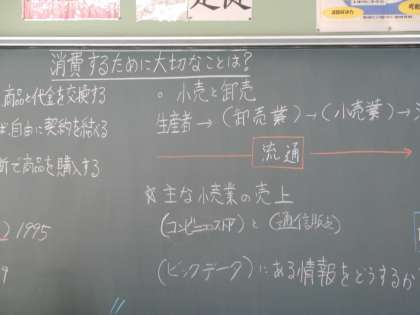 消費するために大切なことは?
商品と代金を交換する
自由に契約を結べる
で商品を購入する
1995
9
○ 小売と卸売
生産者→(卸売業)→(小売業)→
流通
☆主な小売業の売上
(コンビニエンスストア)と(通信販売)
(ビックデータ)にある情報をどうするか